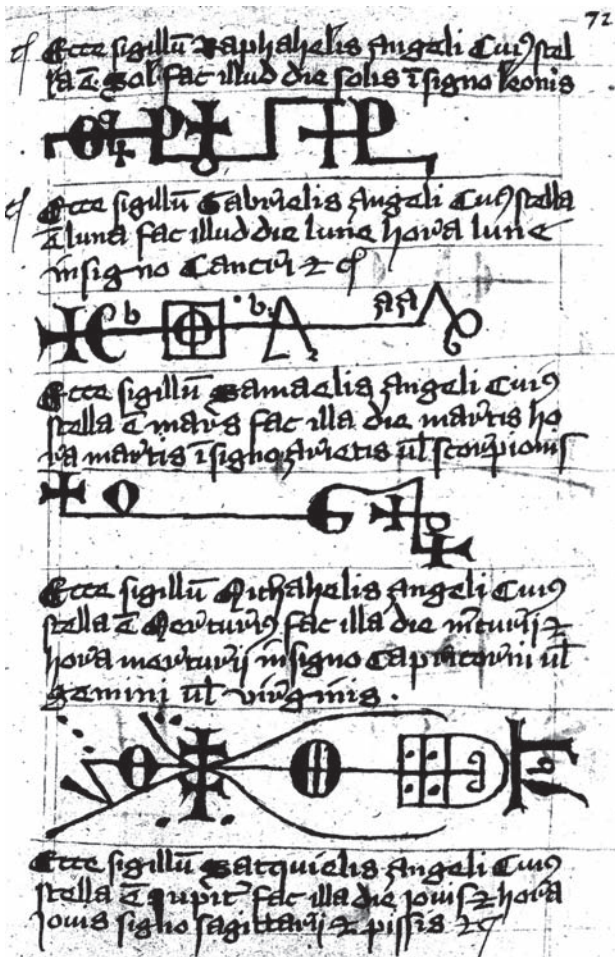 72
Ecce sigillū Raphahelis Angeli Cuiꝰ stel
la ē Sol fac illud die solis ī signo leonis
Ecce sigillū Gabrielis Angeli Cuiꝰ stella
ē luna fac illud die lune hora lune
in signo Cancri ⁊ cͣ
b b A aa
Ecce sigillū Samaelis Angeli Cuiꝰ
stella ē mars fac illa die martis ho
ra martis ī signo Arietis ul̄ scorpionis
Ecce sigillū Michahelis Angeli Cuiꝰ
stella ē Mercuriꝰ fac illa die m̄curii ⁊
hora mercurii in signo Capricorni ul̄
gemini ul̄ virginis .
Ecce sigillū Satquielis Angeli Cuiꝰ
stella ē Iupit̄ fac illa die jovis ⁊ hora
jovis signo sagittarii ⁊ pissis ⁊c